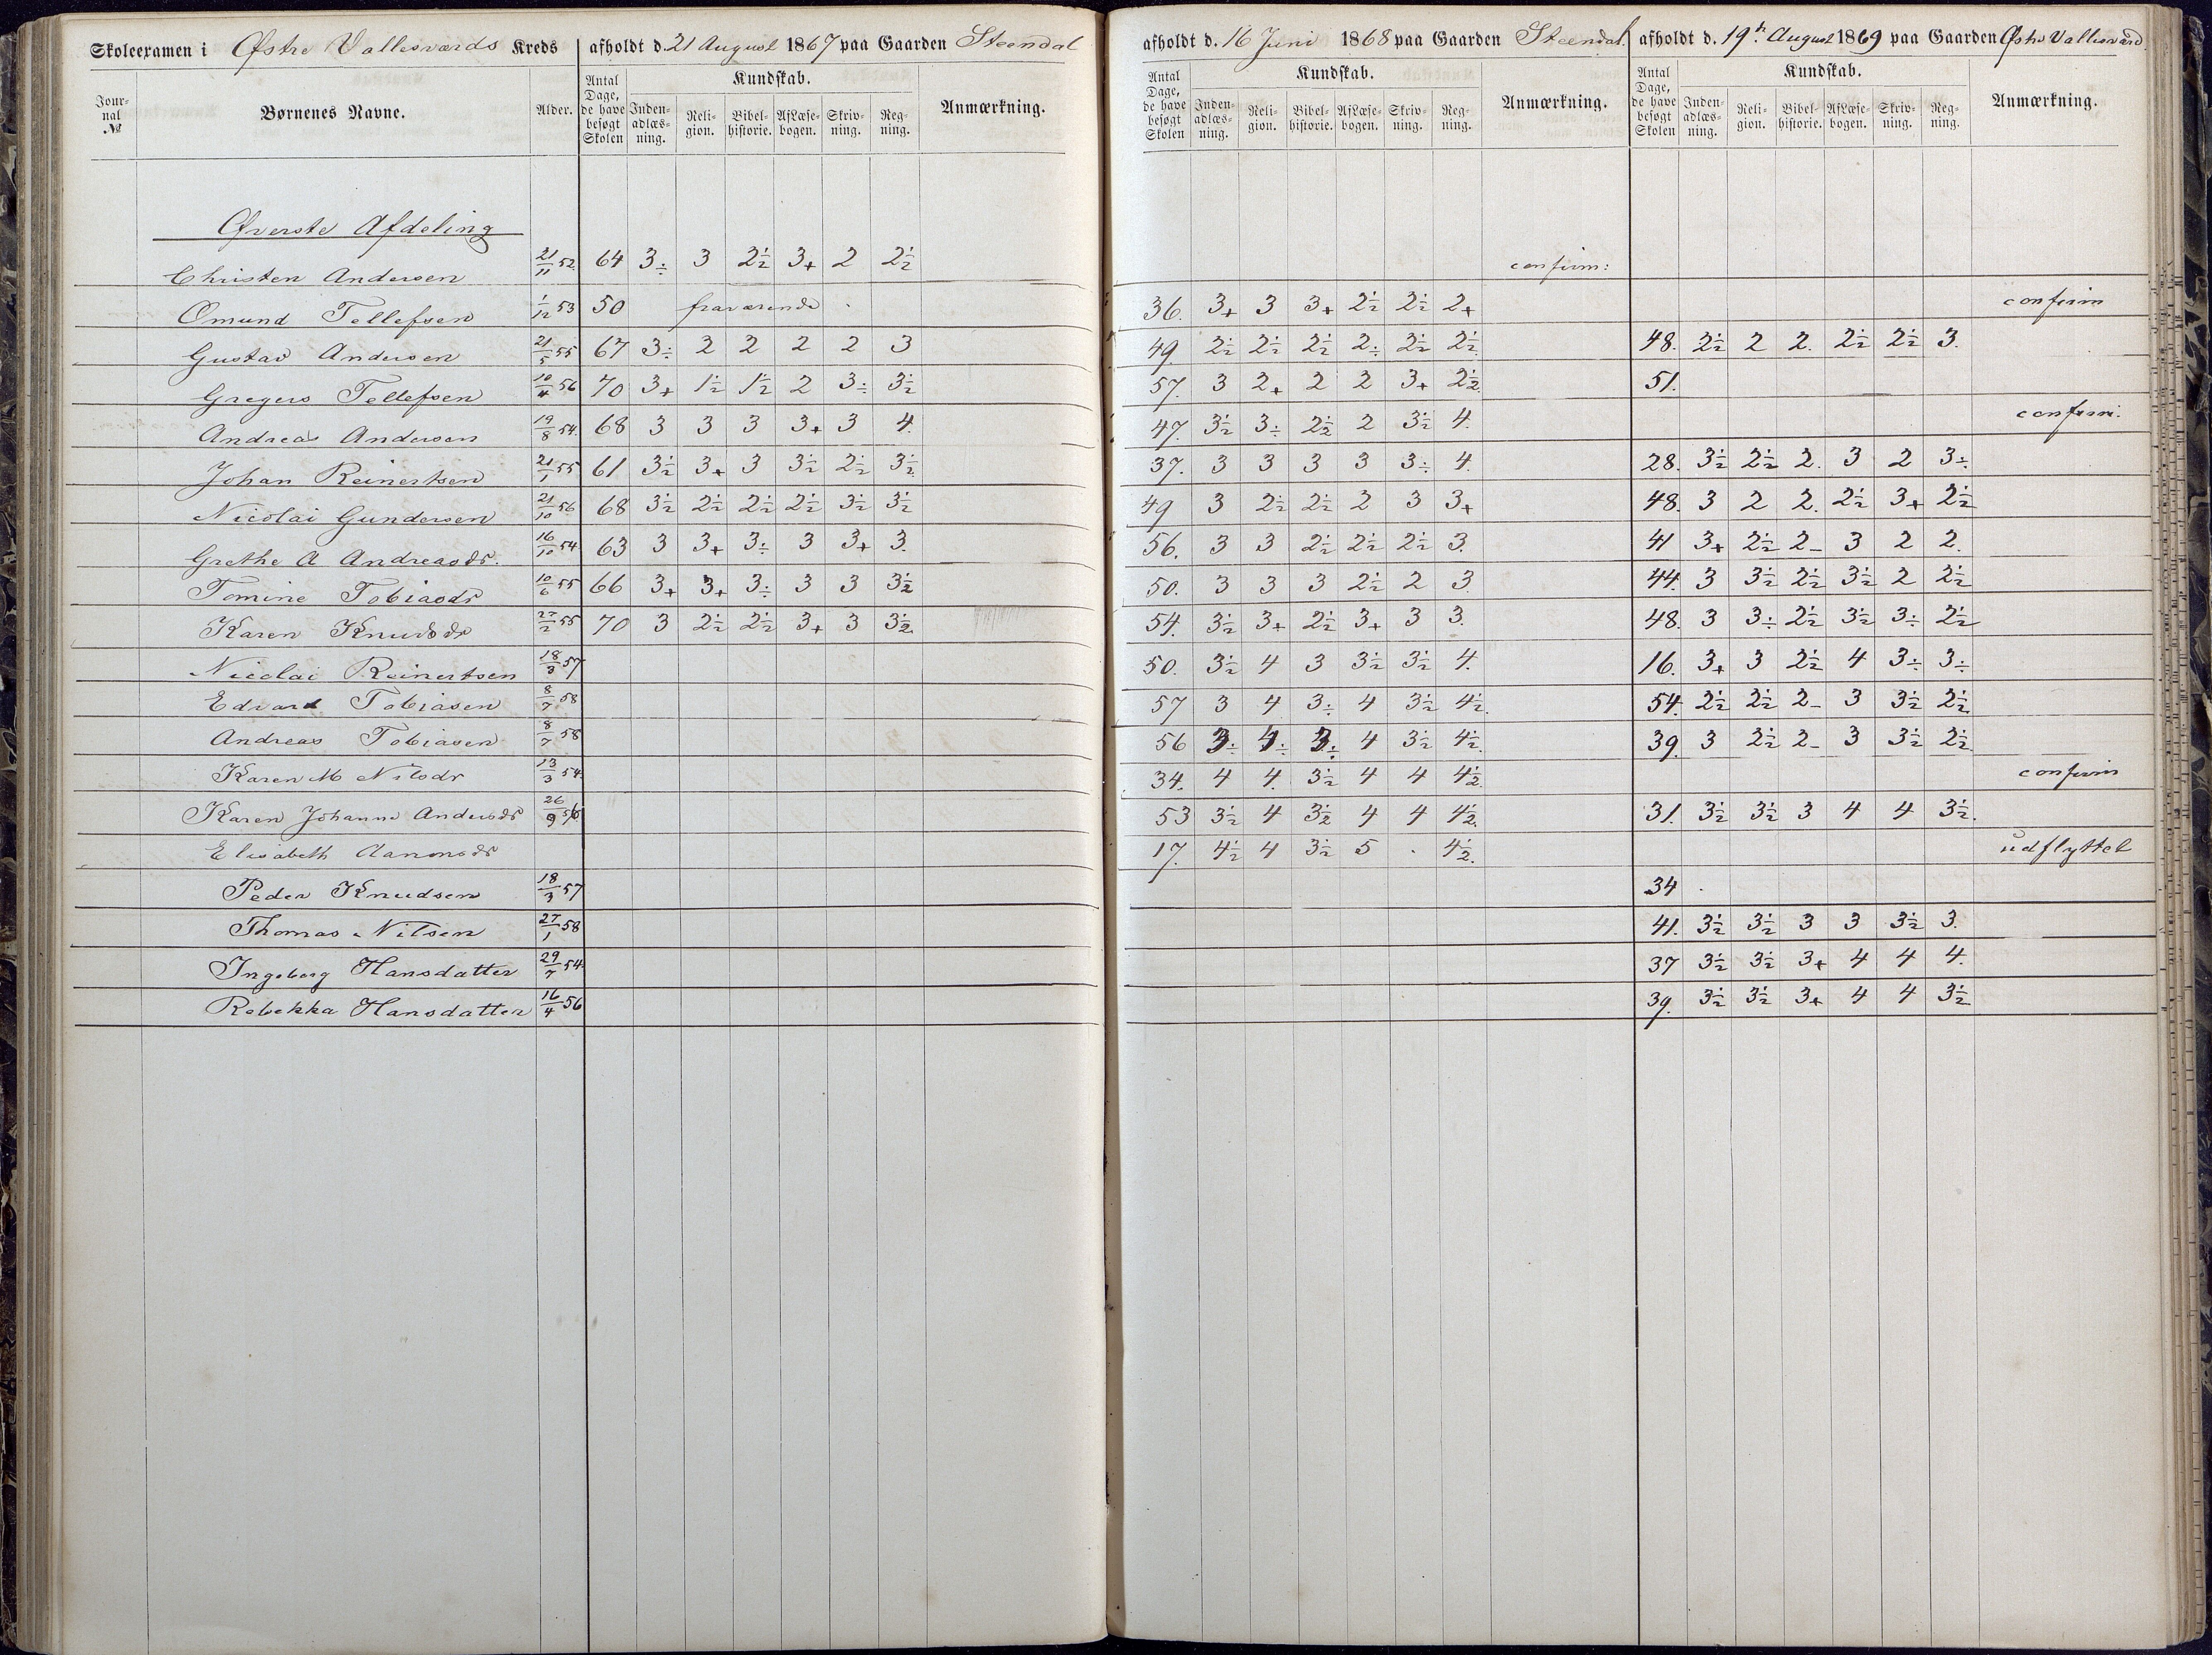 Skoleexamen i Østre Vallesværds Kreds afholdt d. 21 August 1867 paa Gaarden Steendal
afholdt d. 16 Juni 1868 paa Gaarden Steendal. afholdt d. 19de August 1869 paa Gaarden Østre Vallesværd
Jour-nal № Børnenes Navne. Alder. Antal Dage, de have besøgt Skolen Kundskab. Inden-adlæs-ning. Reli-gion. Bibel-historie. Af Læse-bogen. Skriv-ning. Reg-ning. Anmærkning.
Antal Dage, de have besøgt Skolen Kundskab. Inden-adlæs-ning. Reli-gion. Bibel-historie. Af Læse-bogen. Skriv-ning. Reg-ning. Anmærkning.
Antal Dage, de have besøgt Skolen Kundskab. Inden-adlæs-ning. Reli-gion. Bibel-historie. Af Læse-bogen. Skriv-ning. Reg-ning. Anmærkning.
Øverste Afdeling
Christen Andersen 21/11 52 64 3÷ 3 2½ 3+ 2 2½ confirm:
Omund Tellefsen 1/12 53 50 fraværende 36. 3+ 3 3+ 2½ 2½ 2+ confirm
Gustav Andersen 21/5 55 67 3÷ 2 2 2 2 3 49. 2½ 2½ 2½ 2÷ 2½ 2½ 48. 2½ 2 2. 2½ 2½ 3.
Gregers Tellefsen 10/4 56 70 3+ 1½ 1½ 2 3÷ 3½ 57. 3 2+ 2 2 3+ 2½ 51.
Andreas Andersen 19/8 54. 68 3 3 3 3+ 3 4. 47. 3½ 3÷ 2½ 2 3½ 4. confirm.
Johan Reinertsen 21/1 55 61 3½ 3+ 3 3½ 2½ 3½ 37. 3 3 3 3 3÷ 4. 28. 3½ 2½ 2. 3 2 3÷
Nicolai Gundersen 21/10 56 68 3½ 2½ 2½ 2½ 3½ 3½ 49 3 2½ 2½ 2 3 3+ 48. 3 2 2. 2½ 3+ 2½
Grethe A Andreasdr. 16/10 54 63 3 3+ 3÷ 3 3+ 3. 56. 3 3 2½ 2½ 2½ 3. 41 3+ 2½ 2- 3 2 2.
Tomine Tobiasdr 10/6 55 66 3+ 3+ 3÷ 3 3 3½ 50. 3 3 3 2½ 2 3. 44. 3 3½ 2½ 3½ 2 2½
Karen Knudsdr 27/2 55 70 3 2½ 2½ 3+ 3 3½ 54. 3½ 3+ 2½ 3+ 3 3. 48. 3 3÷ 2½ 3½ 3÷ 2½
Nicolai Reinertsen 18/3 57 50. 3½ 4 3 3½ 3½ 4. 16. 3+ 3 2½ 4 3÷ 3÷
Edvard Tobiasen 8/7 58 57 3 4 3÷ 4 3½ 4½. 54. 2½ 2½ 2- 3 3½ 2½
Andreas Tobiasen 8/7 58 56 3÷ 4÷ 3÷ 4 3½ 4½. 39. 3 2½ 2- 3 3½ 2½
Karen M Nilsdr 13/3 54. 34. 4 4. 3½ 4 4 4½. confirm
Karen Johanne Andersdr 26/9 56 53 3½ 4 3½ 4 4 4½. 31. 3½ 3½ 3 4 4 3½.
Elisabeth Aanonsdr 17. 4½ 4 3½ 5 . 4½. udflyttet
Peder Knudsen 18/3 57 34
Thomas Nilsen 27/1 58 41. 3½ 3½ 3 3 3½ 3.
Ingeborg Hansdatter 29/7 54. 37 3½ 3½ 3+ 4 4 4.
Rebekka Hansdatter 16/4 56 39. 3½ 3½ 3+ 4 4 3½